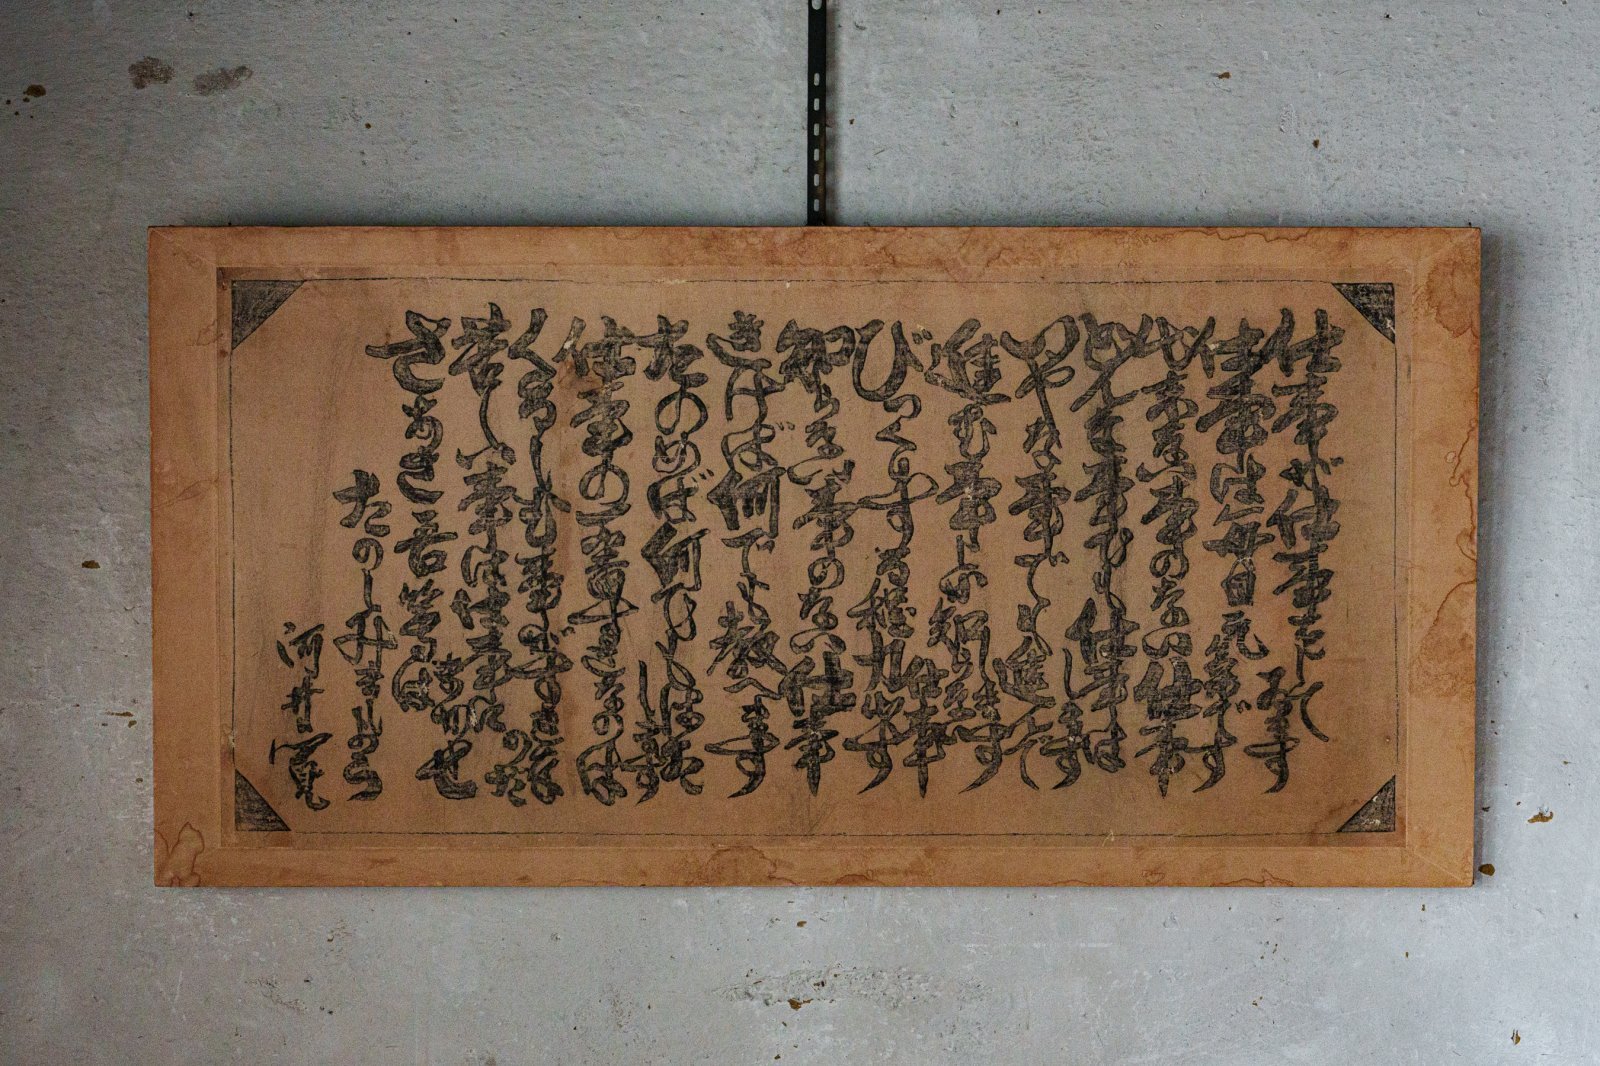 仕事が仕事をして居ます
仕事は毎日元気です
出来ない事のない仕事
どんな事でも仕事はします
いやな事でも進んでします
進む事しか知らない仕事
びっくりする程力出す
知らない事のない仕事
きけば何でも教へます
たのめば何でもはたします
仕事の一番すきなのは
くるしむ事がすきなのだ
苦しい事は仕事にまかせ
さあさ吾等は
たのしみましょう
河井寛